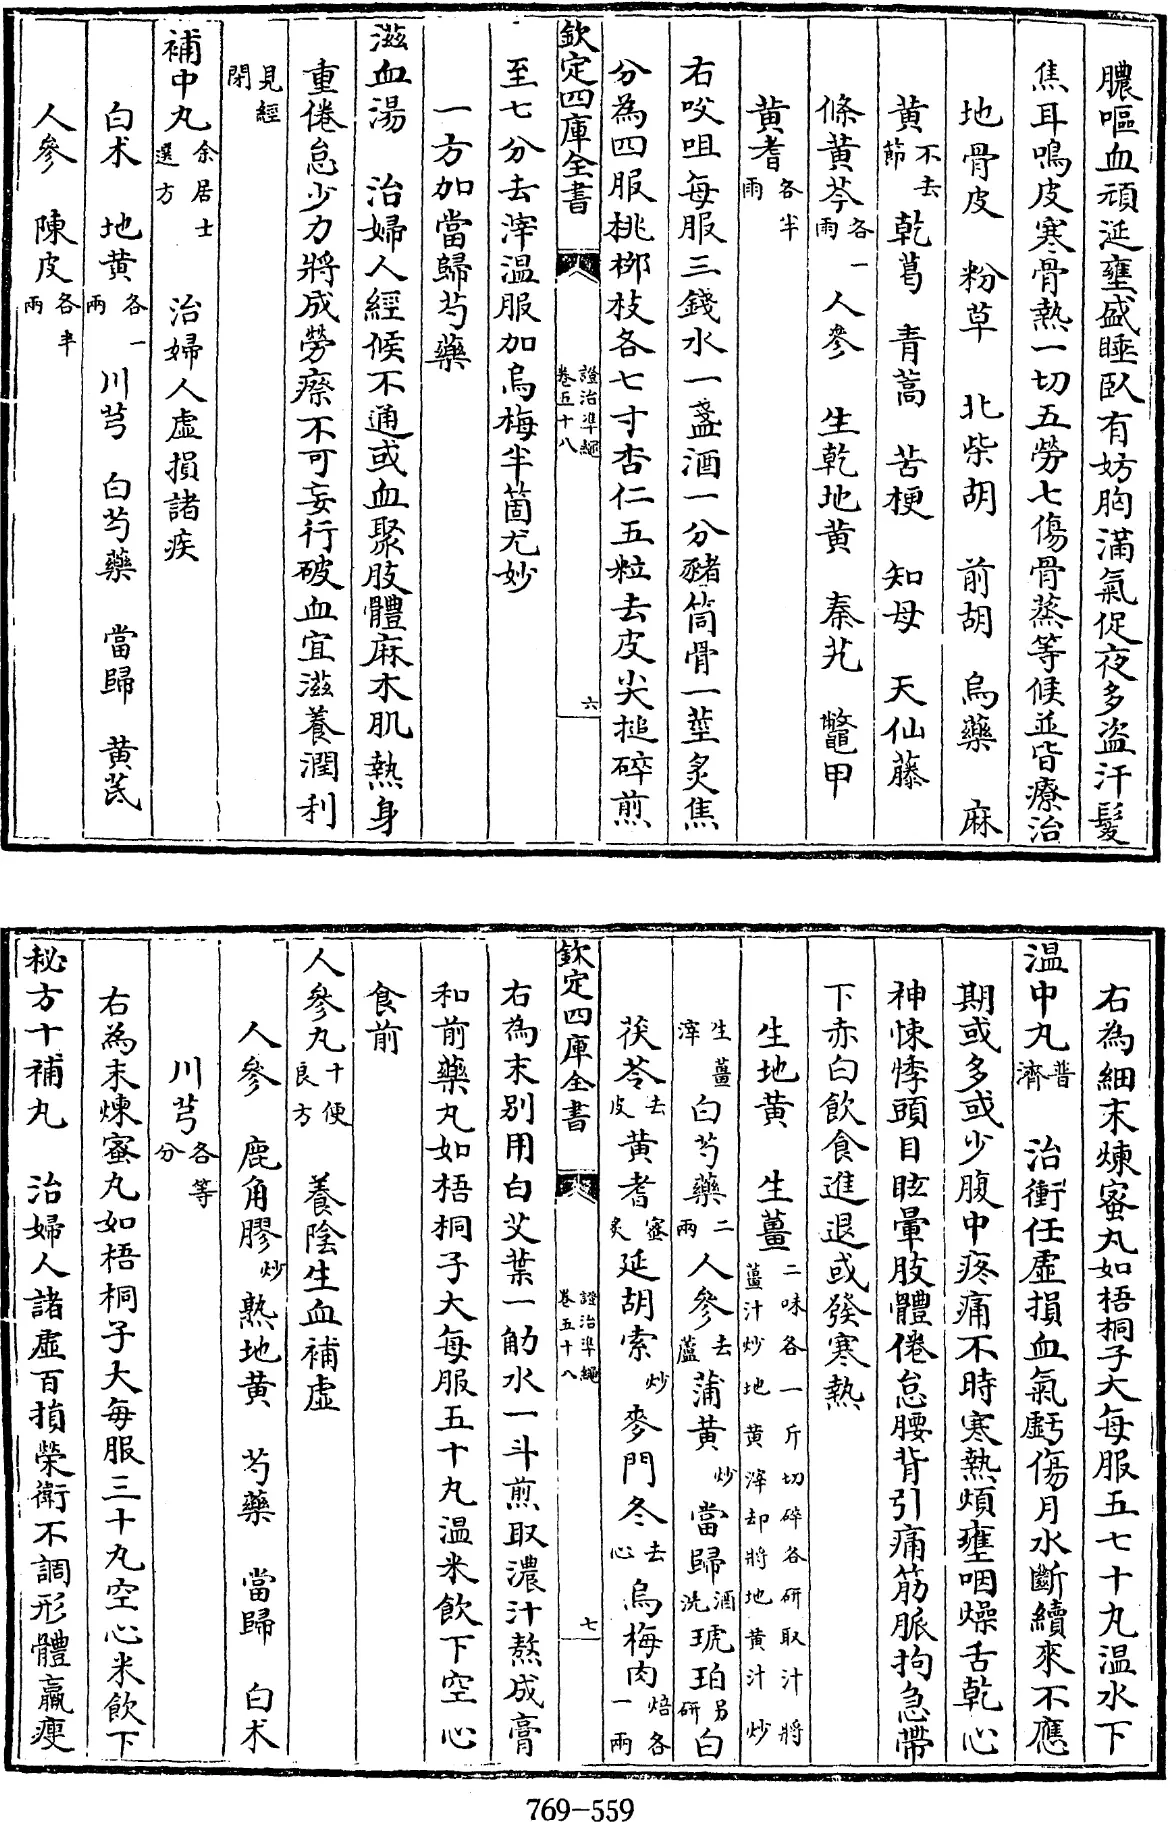 膿嘔血頑涎壅盛睡臥有妨胸滿氣促夜多盗汗髮
焦耳鳴皮寒骨熱一切五勞七傷骨蒸等候並皆療治
地骨皮　粉草　北柴胡　前胡　烏藥　麻
黄不去節　乾葛　青蒿　苦梗　知母　天仙藤
條黄芩各一兩　人參　生乾地黄　秦艽　鼈甲
黄耆各半兩
右㕮咀每服三錢水一盞酒一分豬筒骨一莖炙焦
分為四服桃栁枝各七寸杏仁五粒去皮尖搥碎煎
欽定四庫全書　證治準繩卷五十八　六
至七分去滓温服加烏梅半箇尤妙
一方加當歸芍藥
滋血湯　治婦人經候不通或血聚肢體麻木肌熱身
重倦怠少力將成勞瘵不可妄行破血宜滋養潤利
見經閉
補中丸余居士選方　治婦人虛損諸疾
白术　地黄各一兩　川芎　白芍藥　當歸　黄芪
人參　陳皮各半兩
右為細末煉蜜丸如梧桐子大每服五七十丸温水下
温中丸普濟　治衝任虛損血氣虧傷月水斷續來不應
期或多或少腹中疼痛不時寒熱煩壅咽燥舌乾心
神悚悸頭目眩暈肢體倦怠腰背引痛筋脈拘急帶
下赤白飲食進退或發寒熱
生地黄　生薑二味各一斤切碎各研取汁將薑汁炒地黄滓却將地黄汁炒
生薑滓　白芍藥二兩　人參去蘆　蒲黄炒　當歸酒洗　琥珀另研　白
茯苓去皮　黄耆蜜炙　延胡索炒　麥門冬去心　烏梅肉焙各一兩
欽定四庫全書　證治準繩卷五十八　七
右為末别用白艾葉一觔水一斗煎取濃汁熬成膏
和前藥丸如梧桐子大每服五十丸温米飲下空心
食前
人參丸十便良方　養陰生血補虛
人參　鹿角膠炒　熟地黄　芍藥　當歸　白术
川芎各等分
右為末煉蜜丸如梧桐子大每服三十丸空心米飲下
秘方十補丸　治婦人諸虛百損榮衛不調形體羸瘦
769-559